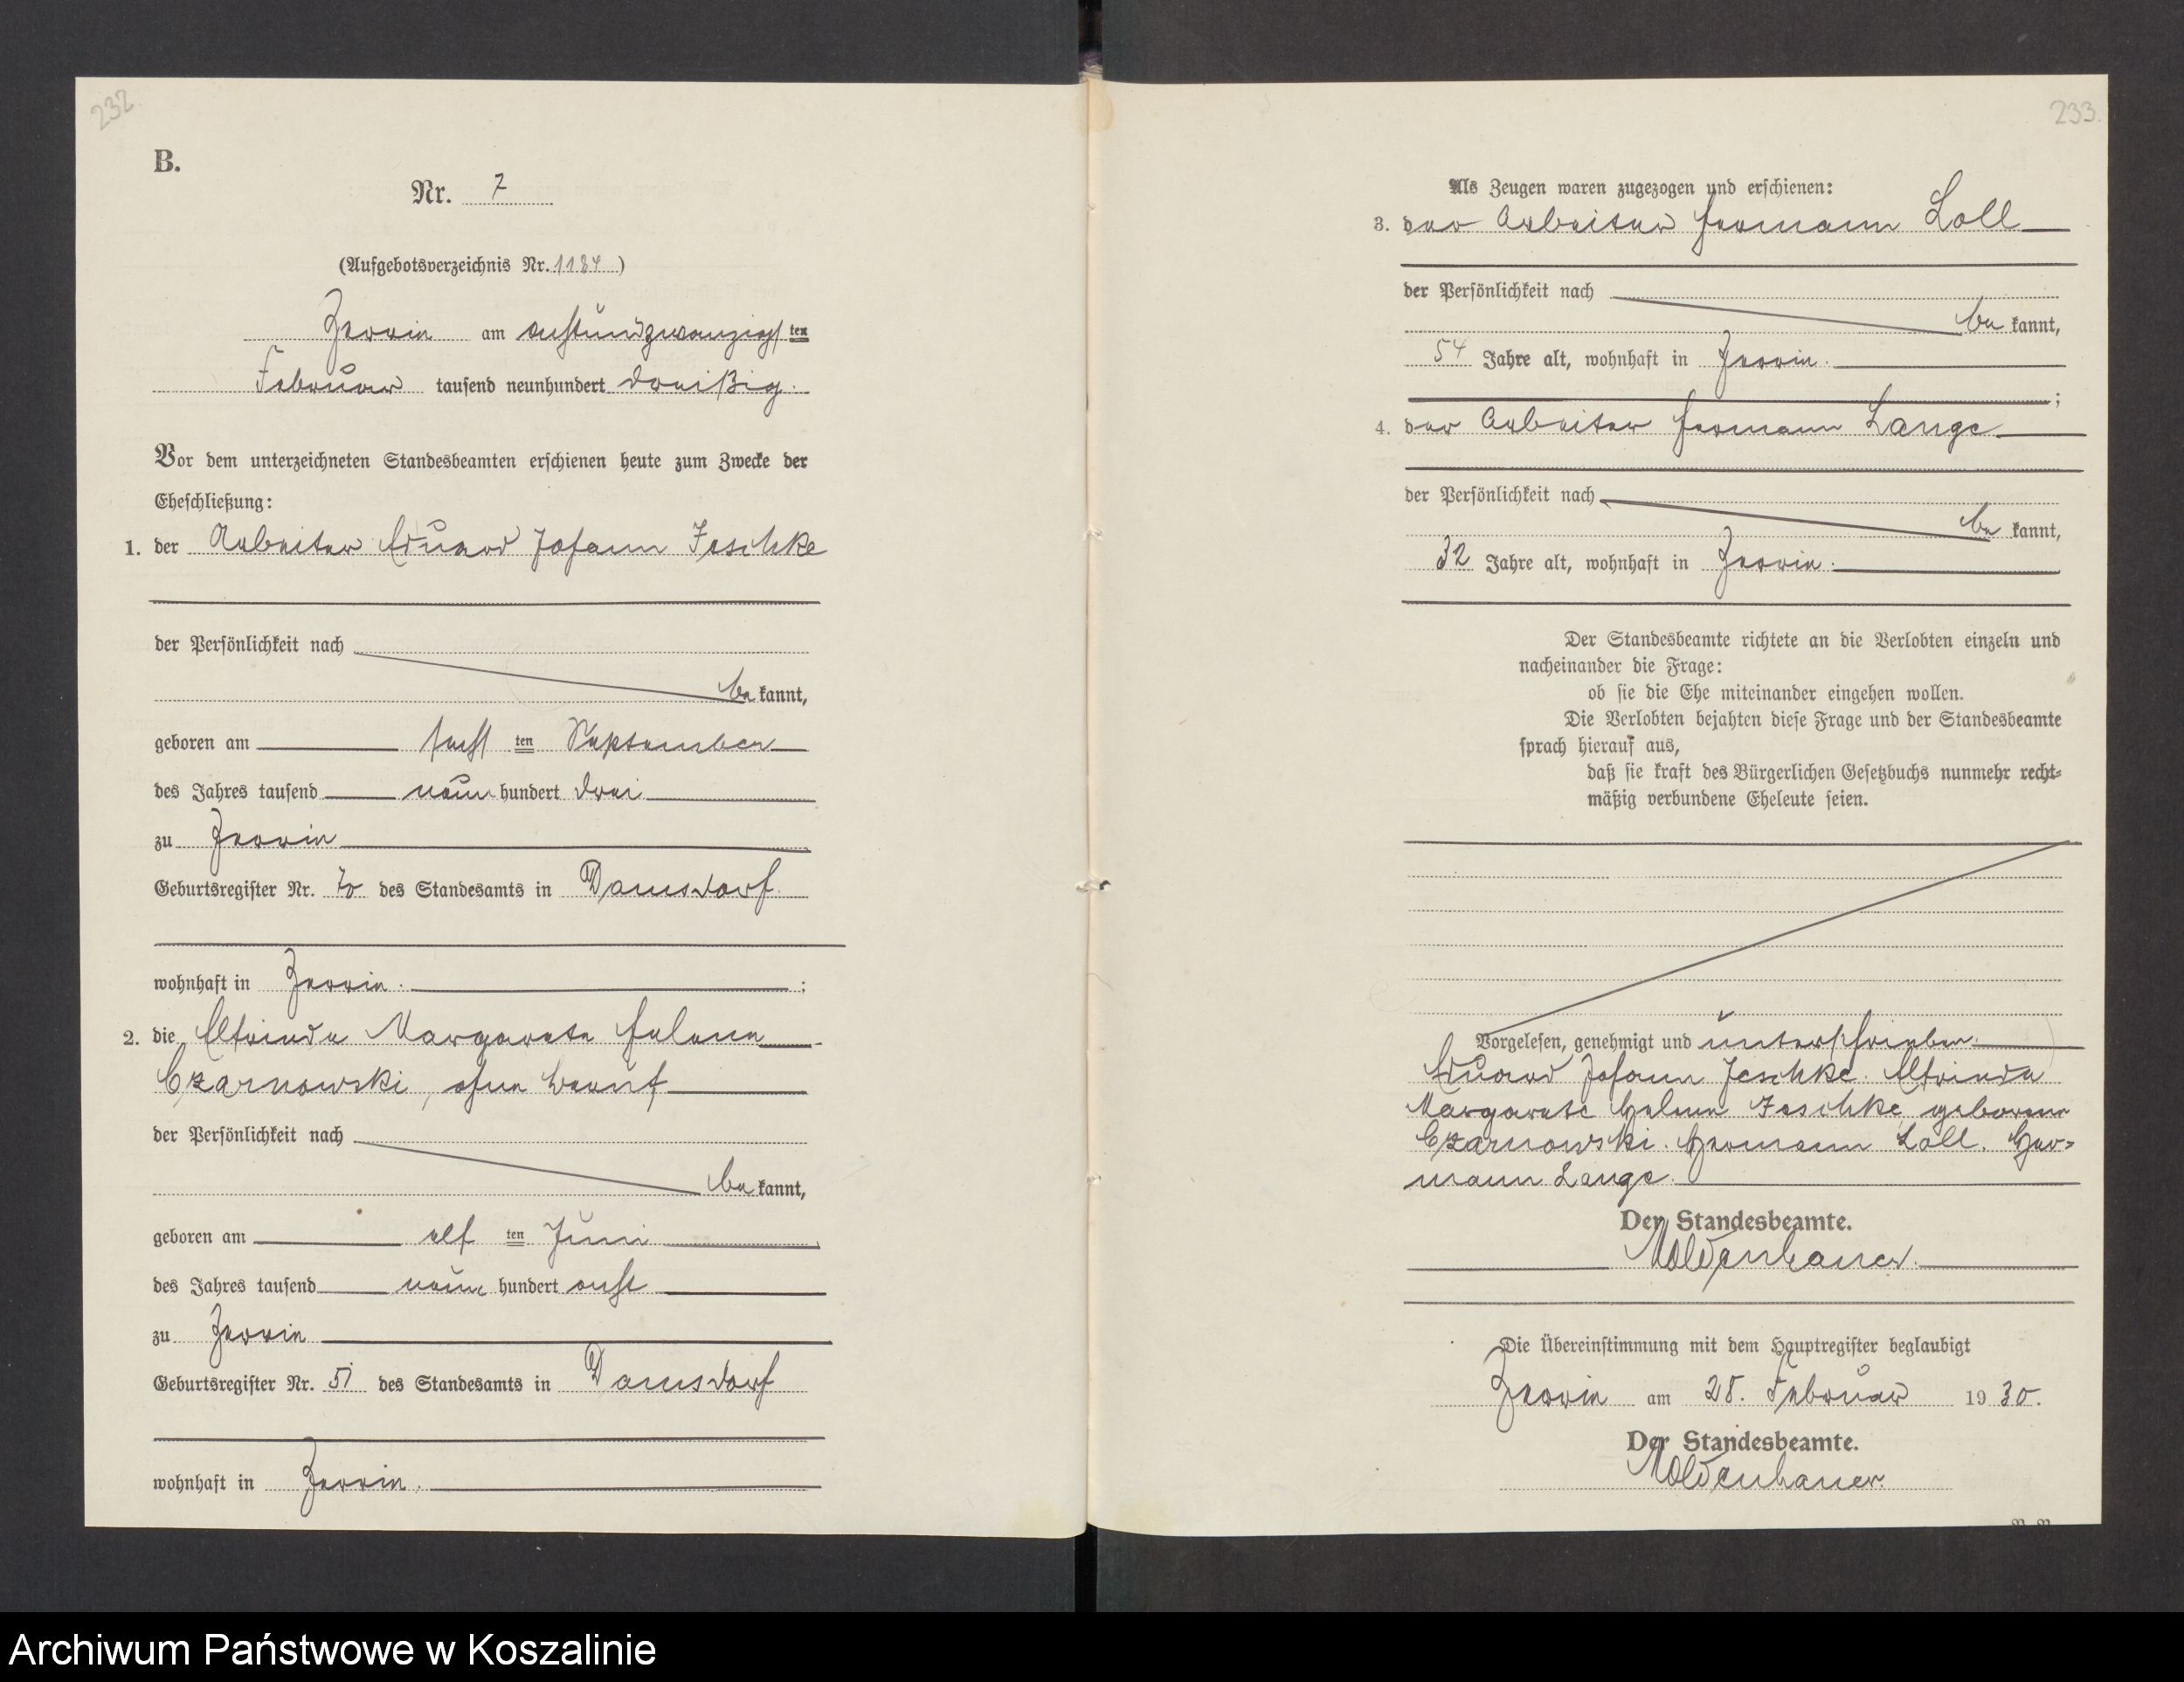 232
B.
Nr. 7
(Aufgebotsverzeichnis Nr. 1184)
Zerrin am achtundzwanzigsten
Februar tausend neunhundert dreißig.
Vor dem unterzeichneten Standesbeamten erschienen heute zum Zwecke der
Eheschließung:
1. der Arbeiter Eduard Johann Jeschke
der Persönlichkeit nach
be kannt,
geboren am sechs ten September
des Jahres tausend neun hundert drei
zu Zerrin
Geburtsregister Nr. 70 des Standesamts in Damsdorf
wohnhaft in Zerrin. ;
2. die Elfrieda Margarete Helene
Czarnowski, ohne Beruf
der Persönlichkeit nach
be kannt,
geboren am elf ten Juni
des Jahres tausend neun hundert acht
zu Zerrin
Geburtsregister Nr. 51 des Standesamts in Damsdorf
wohnhaft in Zerrin.
233.
Als Zeugen waren zugezogen und erschienen:
3. der Arbeiter Hermann Loll
der Persönlichkeit nach
be kannt,
54 Jahre alt, wohnhaft in Zerrin.
;
4. der Arbeiter Hermann Lange
der Persönlichkeit nach
be kannt,
32 Jahre alt, wohnhaft in Zerrin.
Der Standesbeamte richtete an die Verlobten einzeln und
nacheinander die Frage:
ob sie die Ehe miteinander eingehen wollen.
Die Verlobten bejahten diese Frage und der Standesbeamte
sprach hierauf aus,
daß sie kraft des Bürgerlichen Gesetzbuchs nunmehr recht-
mäßig verbundene Eheleute seien.
Vorgelesen, genehmigt und unterschrieben.
Eduard Johann Jeschke. Elfrieda
Margarete Helene Jeschke, geborene
Czarnowski. Hermann Loll. Her-
mann Lange.
Der Standesbeamte.
Moldenhauer.
Die Übereinstimmung mit dem Hauptregister beglaubigt
Zerrin am 28. Februar 1930.
Der Standesbeamte.
Moldenhauer.
Archiwum Państwowe w Koszalinie